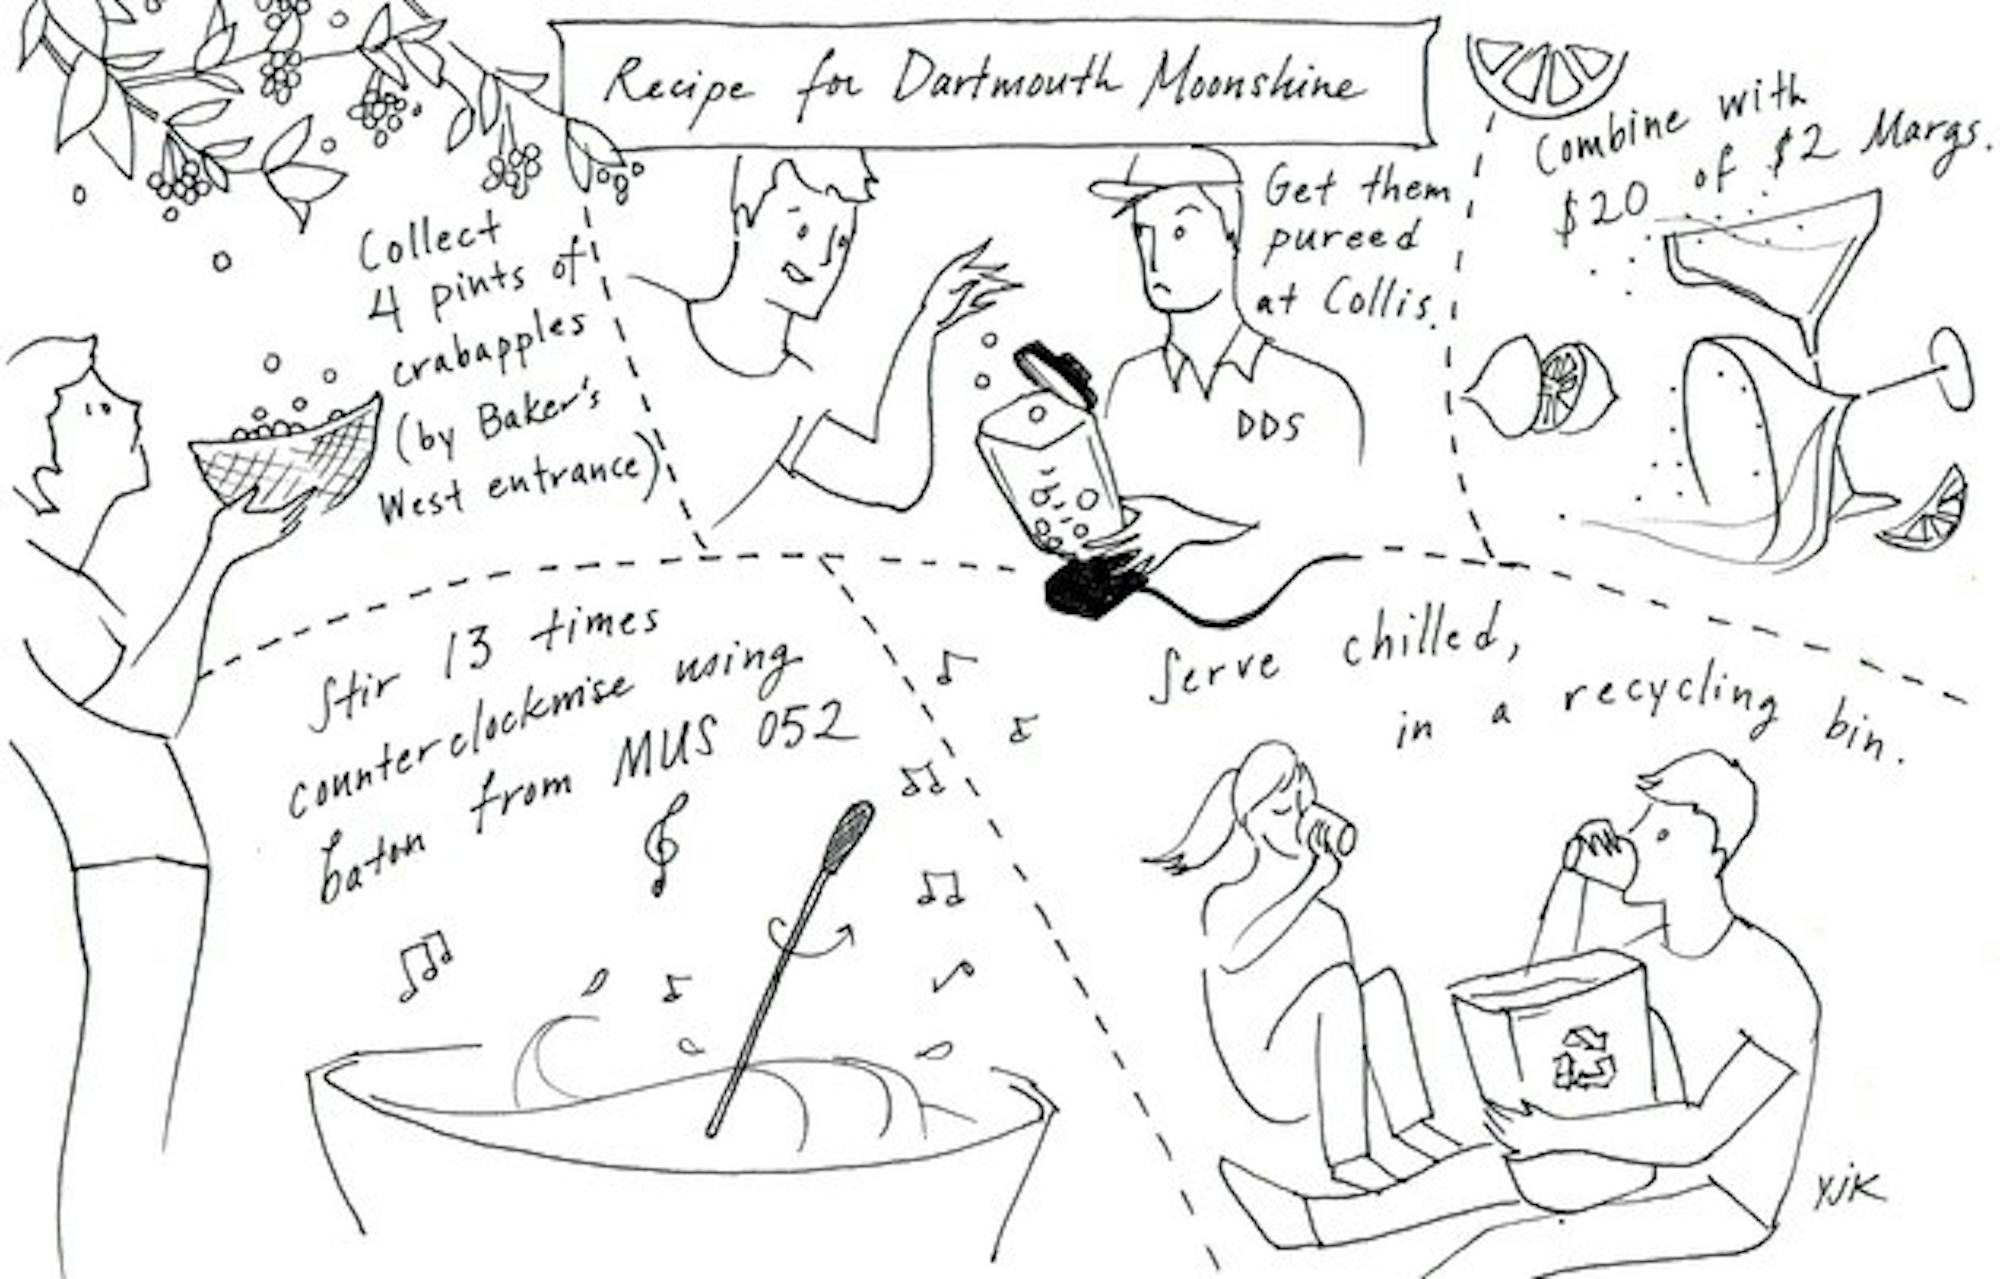 Recipe for Dartmouth Moonshine
Collect
4 pints of
crabapples
(by Baker's
West entrance)
Get them
pureed
at Collis.
DDS
Combine with
$20 of $2 Margs.
Stir 13 times
counterclockwise using
baton from MUS 052
Serve chilled,
in a recycling bin.
YJK